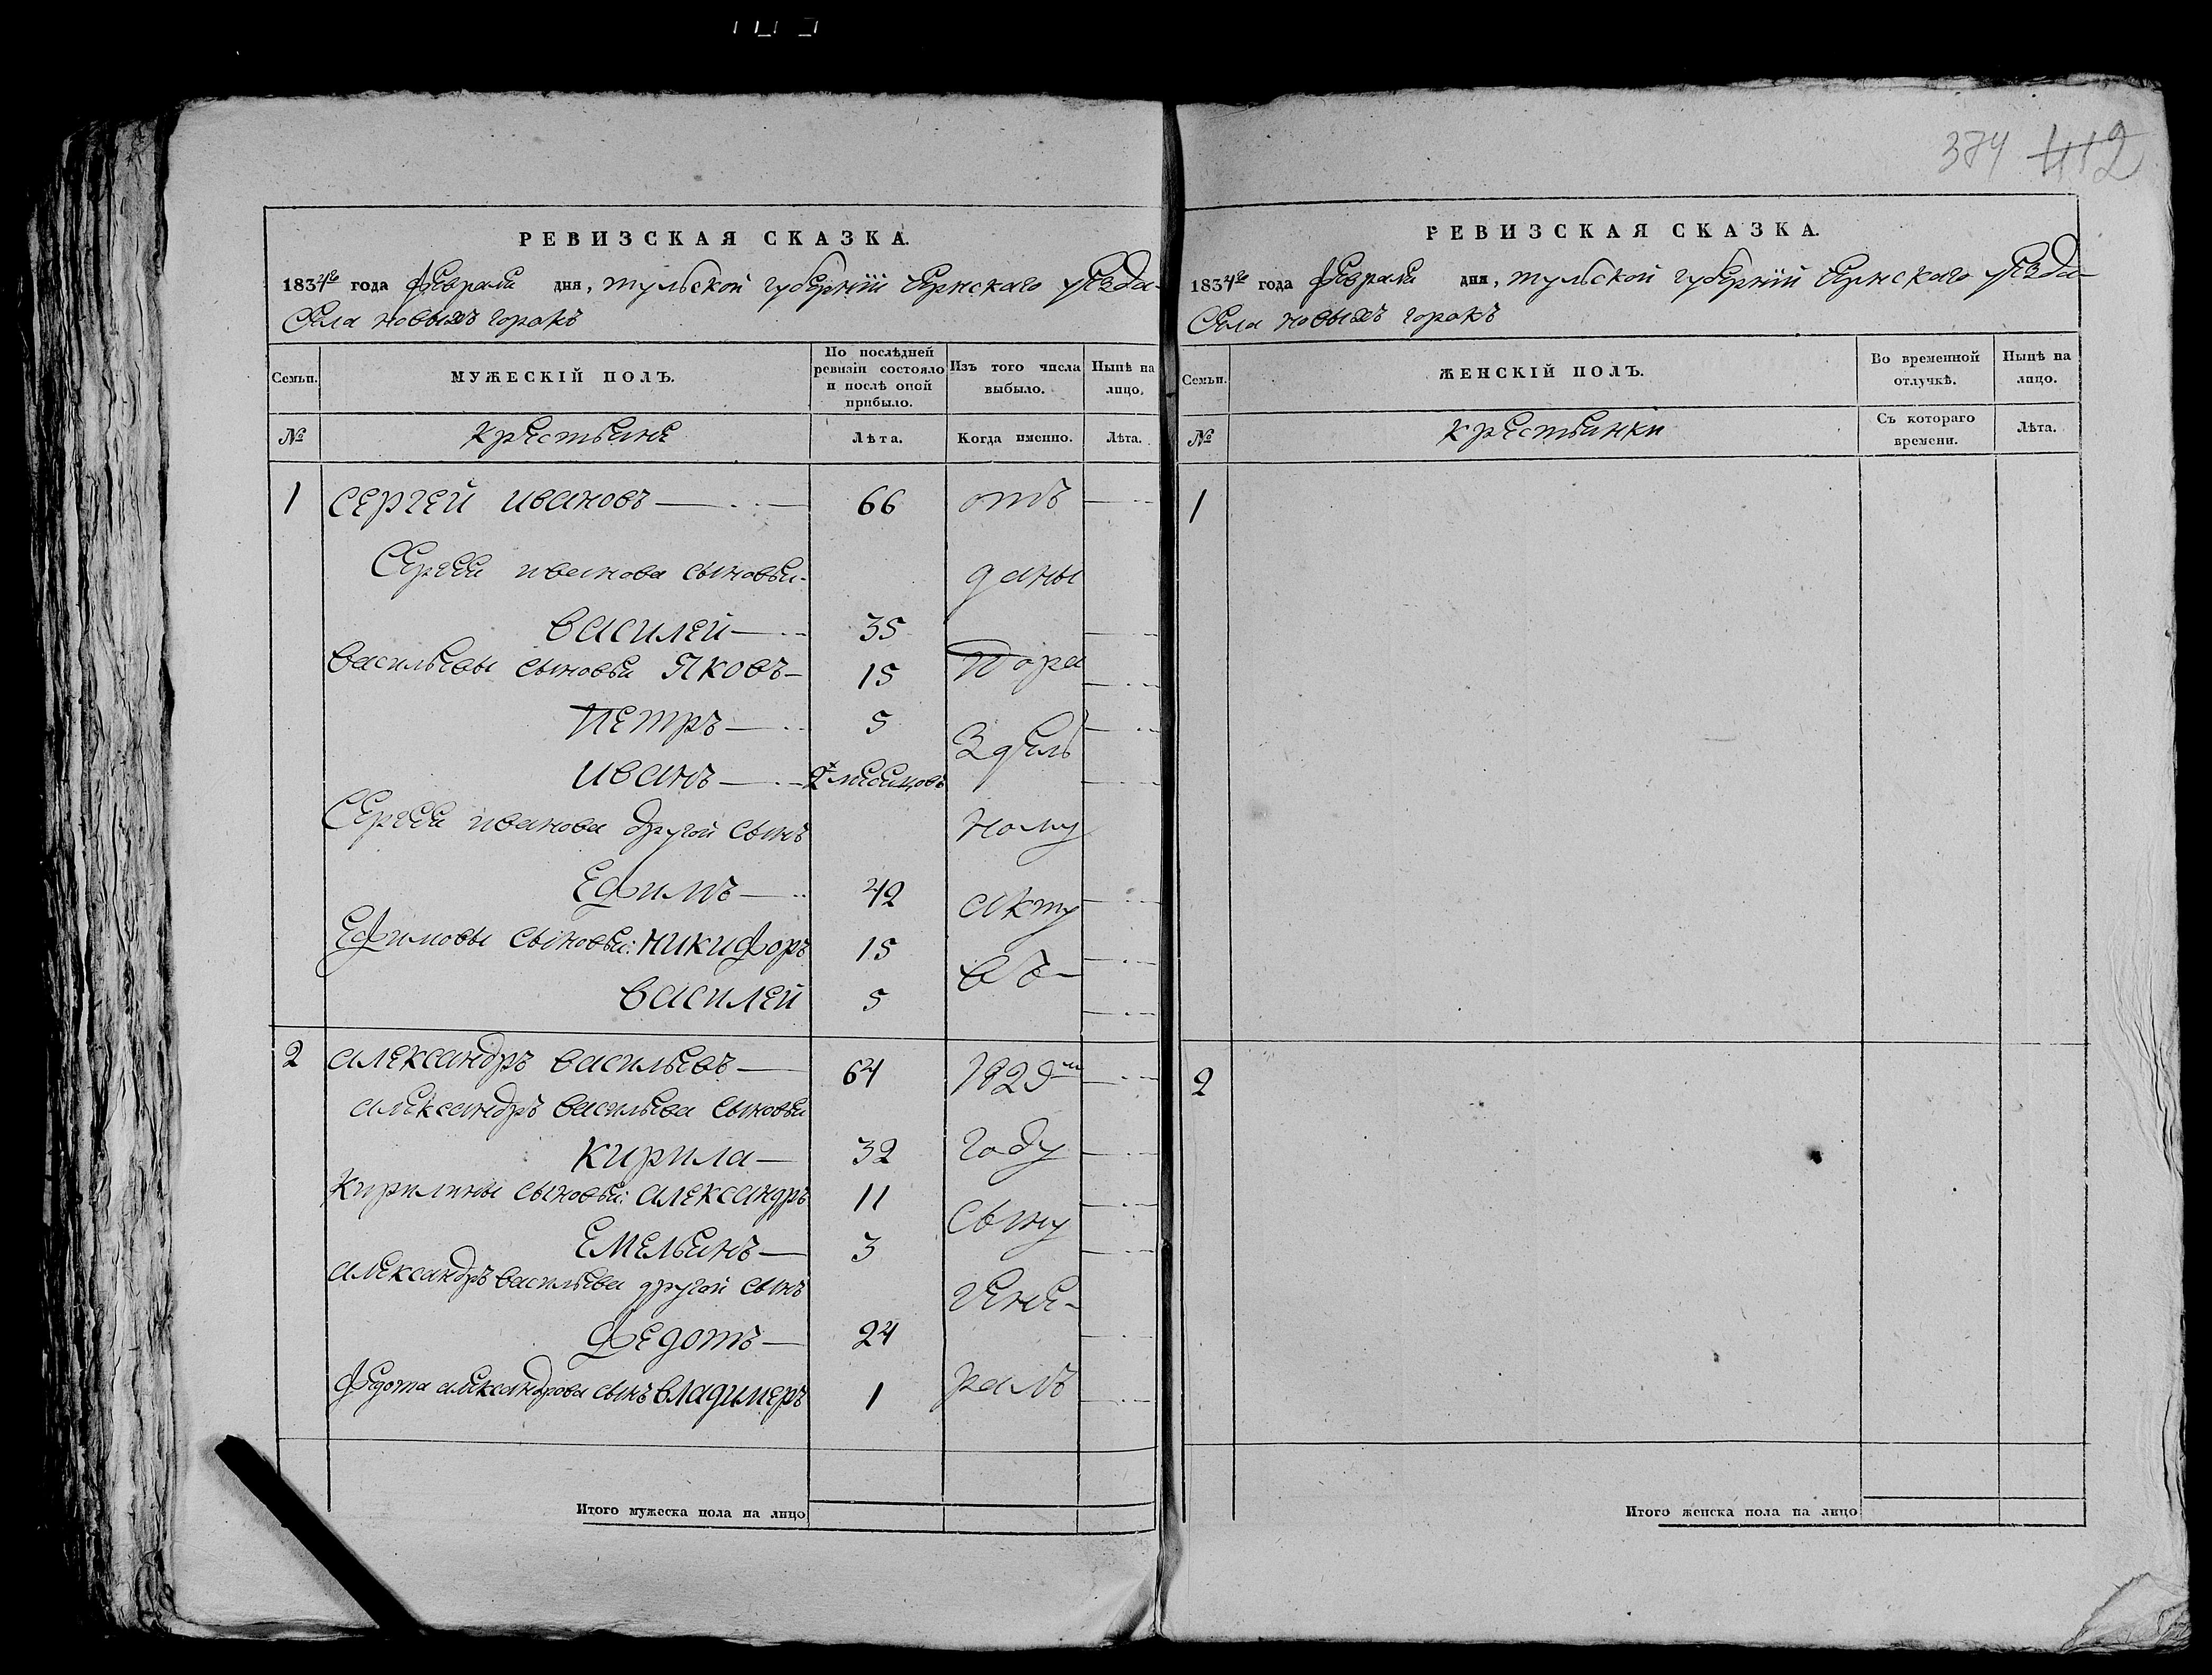 374 412
РЕВИЗСКАЯ СКАЗКА.
1834го года февраля дня, тульской губернiи Чернскаго уѣзда
Села новыхъ горокъ
Семьи. МУЖЕСКІЙ ПОЛЪ. По послѣдней ревизіи состояло и послѣ оной прибыло. Изъ того числа выбыло. Нынѣ на лицо.
№ крестьяне Лѣта. Когда именно. Лѣта.
1 Сергей ивановъ 66 отъ
Сергея иванова сыновья даны
василей 35
васильевы сыновья Яковъ 15 по ра
петръ 5
здель
иванъ месяцовъ
Сергея иванова другой сынъ ному
Ефимъ 42 акту
Ефимовы сыновья: никифоръ 15
въ
василей 5
2 александръ васильевъ 64 1829м
александръ васильева сыновья
кирила 32 году
кирилины сыновья: александръ 11
сыну
емельянъ 3
александръ васильева другой сынъ гене-
федотъ 24
федота александрова сынъ владимеръ 1 ралъ
Итого мужеска пола на лицо
РЕВИЗСКАЯ СКАЗКА.
1834го года февраля дня, тульской губернiи Чернскаго уѣзда
Села новыхъ горокъ
Семьи. ЖЕНСКІЙ ПОЛЪ. Во временной отлучкѣ. Нынѣ на лицо.
№ крестьянки Съ котораго времени. Лѣта.
1
2
Итого женска пола на лицо